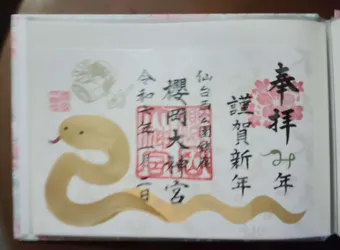 奉拝 み年
謹賀新年
仙台西公園鎮座
櫻岡大神宮
令和 年 月 日